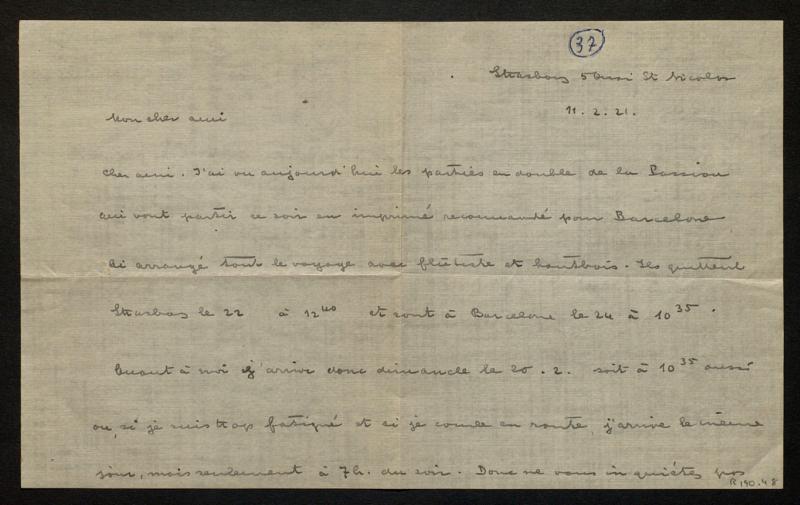 37
Strasbourg 5 Quai St Nicolas
11. 2. 21.
Mon cher ami
Cher ami. J'ai vu aujourd'hui les parties en double de la Passion
qui vont partir ce soir en imprimé recommandé pour Barcelone
Ai arrangé tout le voyage avec flûtiste et hautbois. Ils quittent
Strasbg le 22 à 12 40 et sont à Barcelone le 24 à 10 35.
Quant à moi j'arrive donc dimanche le 20. 2. soit à 10 35 aussi
ou, si je suis trop fatigué et si je couche en route, j'arrive le même
jour, mais seulement à 7h. du soir. Donc ne vous inquiétez pas
R 190.48